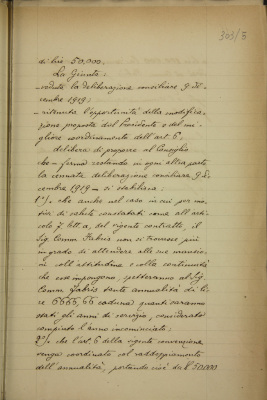 303/5
di lire 50.000.
La Giunta:
- veduta la deliberazione consiliare 9 Di-
cembre 1919;
- ritenuta l'opportunità della modifica-
zione proposta dal Presidente e del mi-
gliore coordinamento dell'art. 6,
delibera di proporre al Consiglio
che - ferma restando in ogni altra parte
la cennata deliberazione consiliare 9 Di-
cembre 1919 - si stabilisca:
1°) che anche nel caso in cui per mo-
tivi di salute constatati come all'arti-
colo 7 lett. a, del vigente contratto, il
Sig. Comm. Fabris non si trovasse più
in grado di attendere alle sue mansio-
ni coll'attitudine e colla continuità
che esse impongono, spetteranno al Sig.
Comm. Fabris tante annualità di li-
re 6666,66 caduna quanti saranno
stati gli anni di servizio, considerato
compiuto l'anno incominciato;
2°) che l'art. 6 della vigente convenzione
venga coordinato col raddoppiamento
dell'annualità, portando cioè da £ 50.000